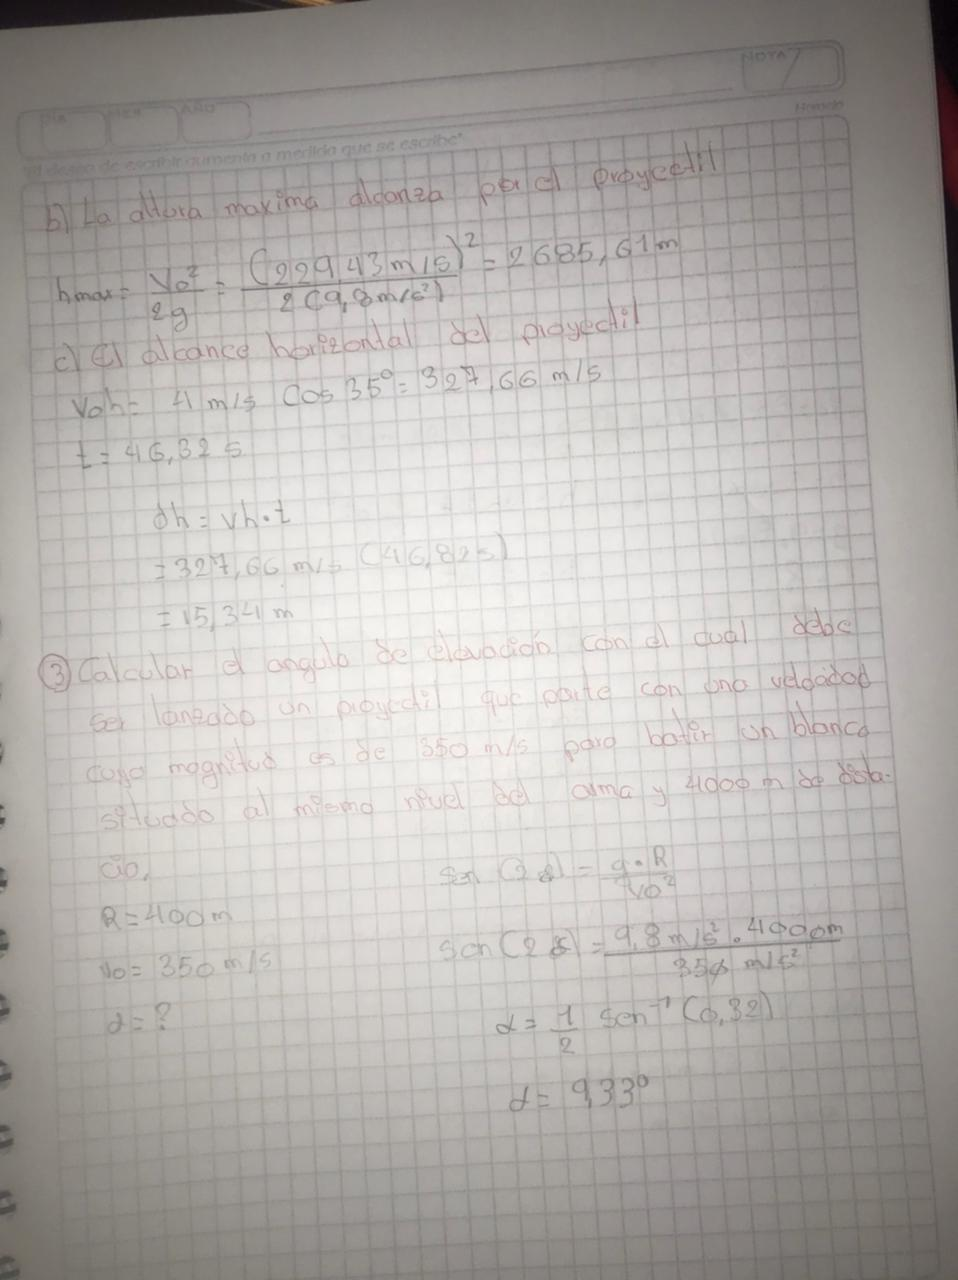 NOTA
DIA MES AÑO
Norma
El deseo de escribir aumenta a medida que se escribe"
b) La altura maxima alcanza por el proyectil
hmax = Vo² / 2g = (229,43 m/s)² / 2(9,8 m/s²) = 2685,61 m
c) El alcance horizontal del proyectil
Voh = 4 m/s Cos 35° = 327,66 m/s
t = 46,82 s
dh = vh · t
= 327,66 m/s (46,82s)
= 15,34 m
③ Calcular el angulo de elevación con el cual debe
ser lanzado un proyectil que parte con una velocidad
cuya magnitud es de 350 m/s para batir un blanco
situado al mismo nivel del arma y 4000 m de dista-
cia.
Sen (2α) = g·R / Vo²
R = 400m
Sen (2α) = 9,8 m/s² . 4000m / 350 m/s²
Vo = 350 m/s
α = ?
α = 1/2 Sen⁻¹ (0,32)
α = 9,33°